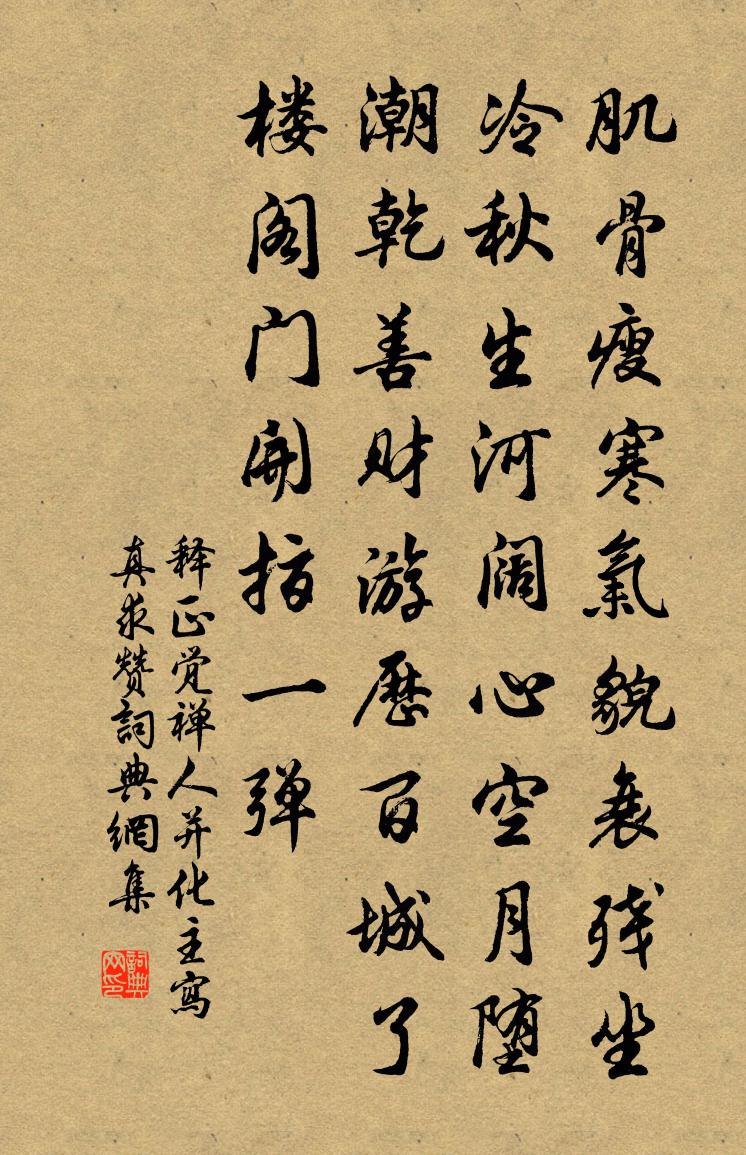 肌骨瘦寒氣貌衰残坐
冷秋生河阔心空月堕
潮乾善财游歷百城了
楼阁门開指一弹
释正觉禅人并化主寫
真求赞詞典網集
詞典
网印